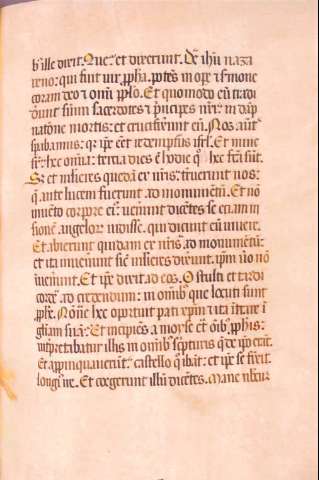 b' ille dixit. Que? et dixerunt. De ihu naza
reno: qui fuit vir ppha. potes in opere et smone
coram deo et omni pplo. Et quomodo eu tradi
derunt summi sacerdotes et principes nri in dap
natione mortis: et crucifixerunt eu. Nos aut
spabamus: qr ipe eet redempturus isrl. Et nunc
sr hec omnia: tercia dies e hodie qr hec fca sut.
Sr et mlieres queda ex nris: truerunt nos:
que ante lucem fuerunt ad monumetu. Et no
inueto corpore ei: uenerunt dicetes se etiam in
sione angelor uidisse. qui dicunt eu uiuere.
Et abierunt quidam ex nris ad monumetu:
et ita inuenerunt sic mlieres dixerunt. ipm uo no
inuenerunt. Et ipe dixit ad eos. O stulti et tardi
corde ad credendum: in omib que locuti sunt
pphe. Nonne hec oportuit pati xpm et ita itrare i
gliam sua? Et incipies a moyse et omib pphis:
interpretabatur illis in omnib scripturis que de ipo erat.
Et appinquauerut castello quo ibat: et ipe se finxit
longius ire. Et coegerunt illu dicetes. Mane nbcu